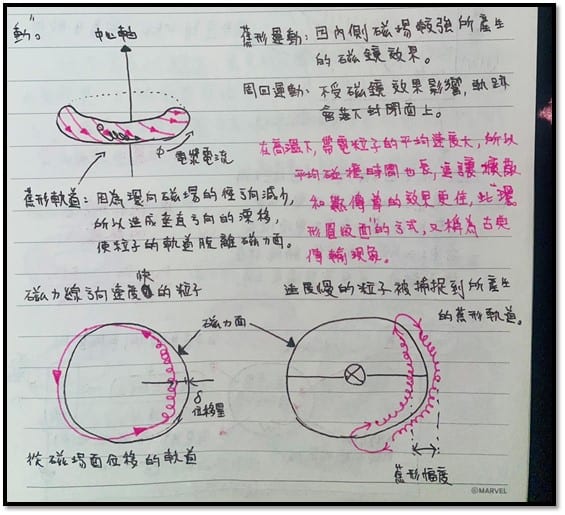 動"。
中心軸
蕉形運動：因內側磁場較強所產生
的磁鏡效果。
周回運動：不受磁鏡效果影響，軌跡
會落下封閉面上。
φ
電漿電流
在高溫下，帶電粒子的平均速度大，所以
平均碰撞時間也長，這讓擴散
和熱傳導的效果更佳，此"環
形置紋面"的方式，又稱為古典
傳輸現象。
蕉形軌道：因為環向磁場的徑向減少，
所以造成垂直方向的漂移，
使粒子的軌道脫離磁力面。
磁力線方向速度快的粒子
速度慢的粒子被捕捉到所產生
的蕉形軌道。
磁力面
δ
位移量
從磁場面位移的軌道
蕉形幅度
©MARVEL